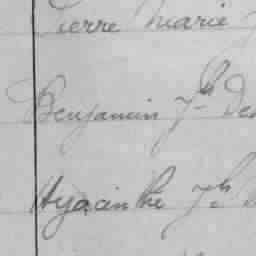 Pierre Marie
Benjamin Jh De
Hyacinthe Jh